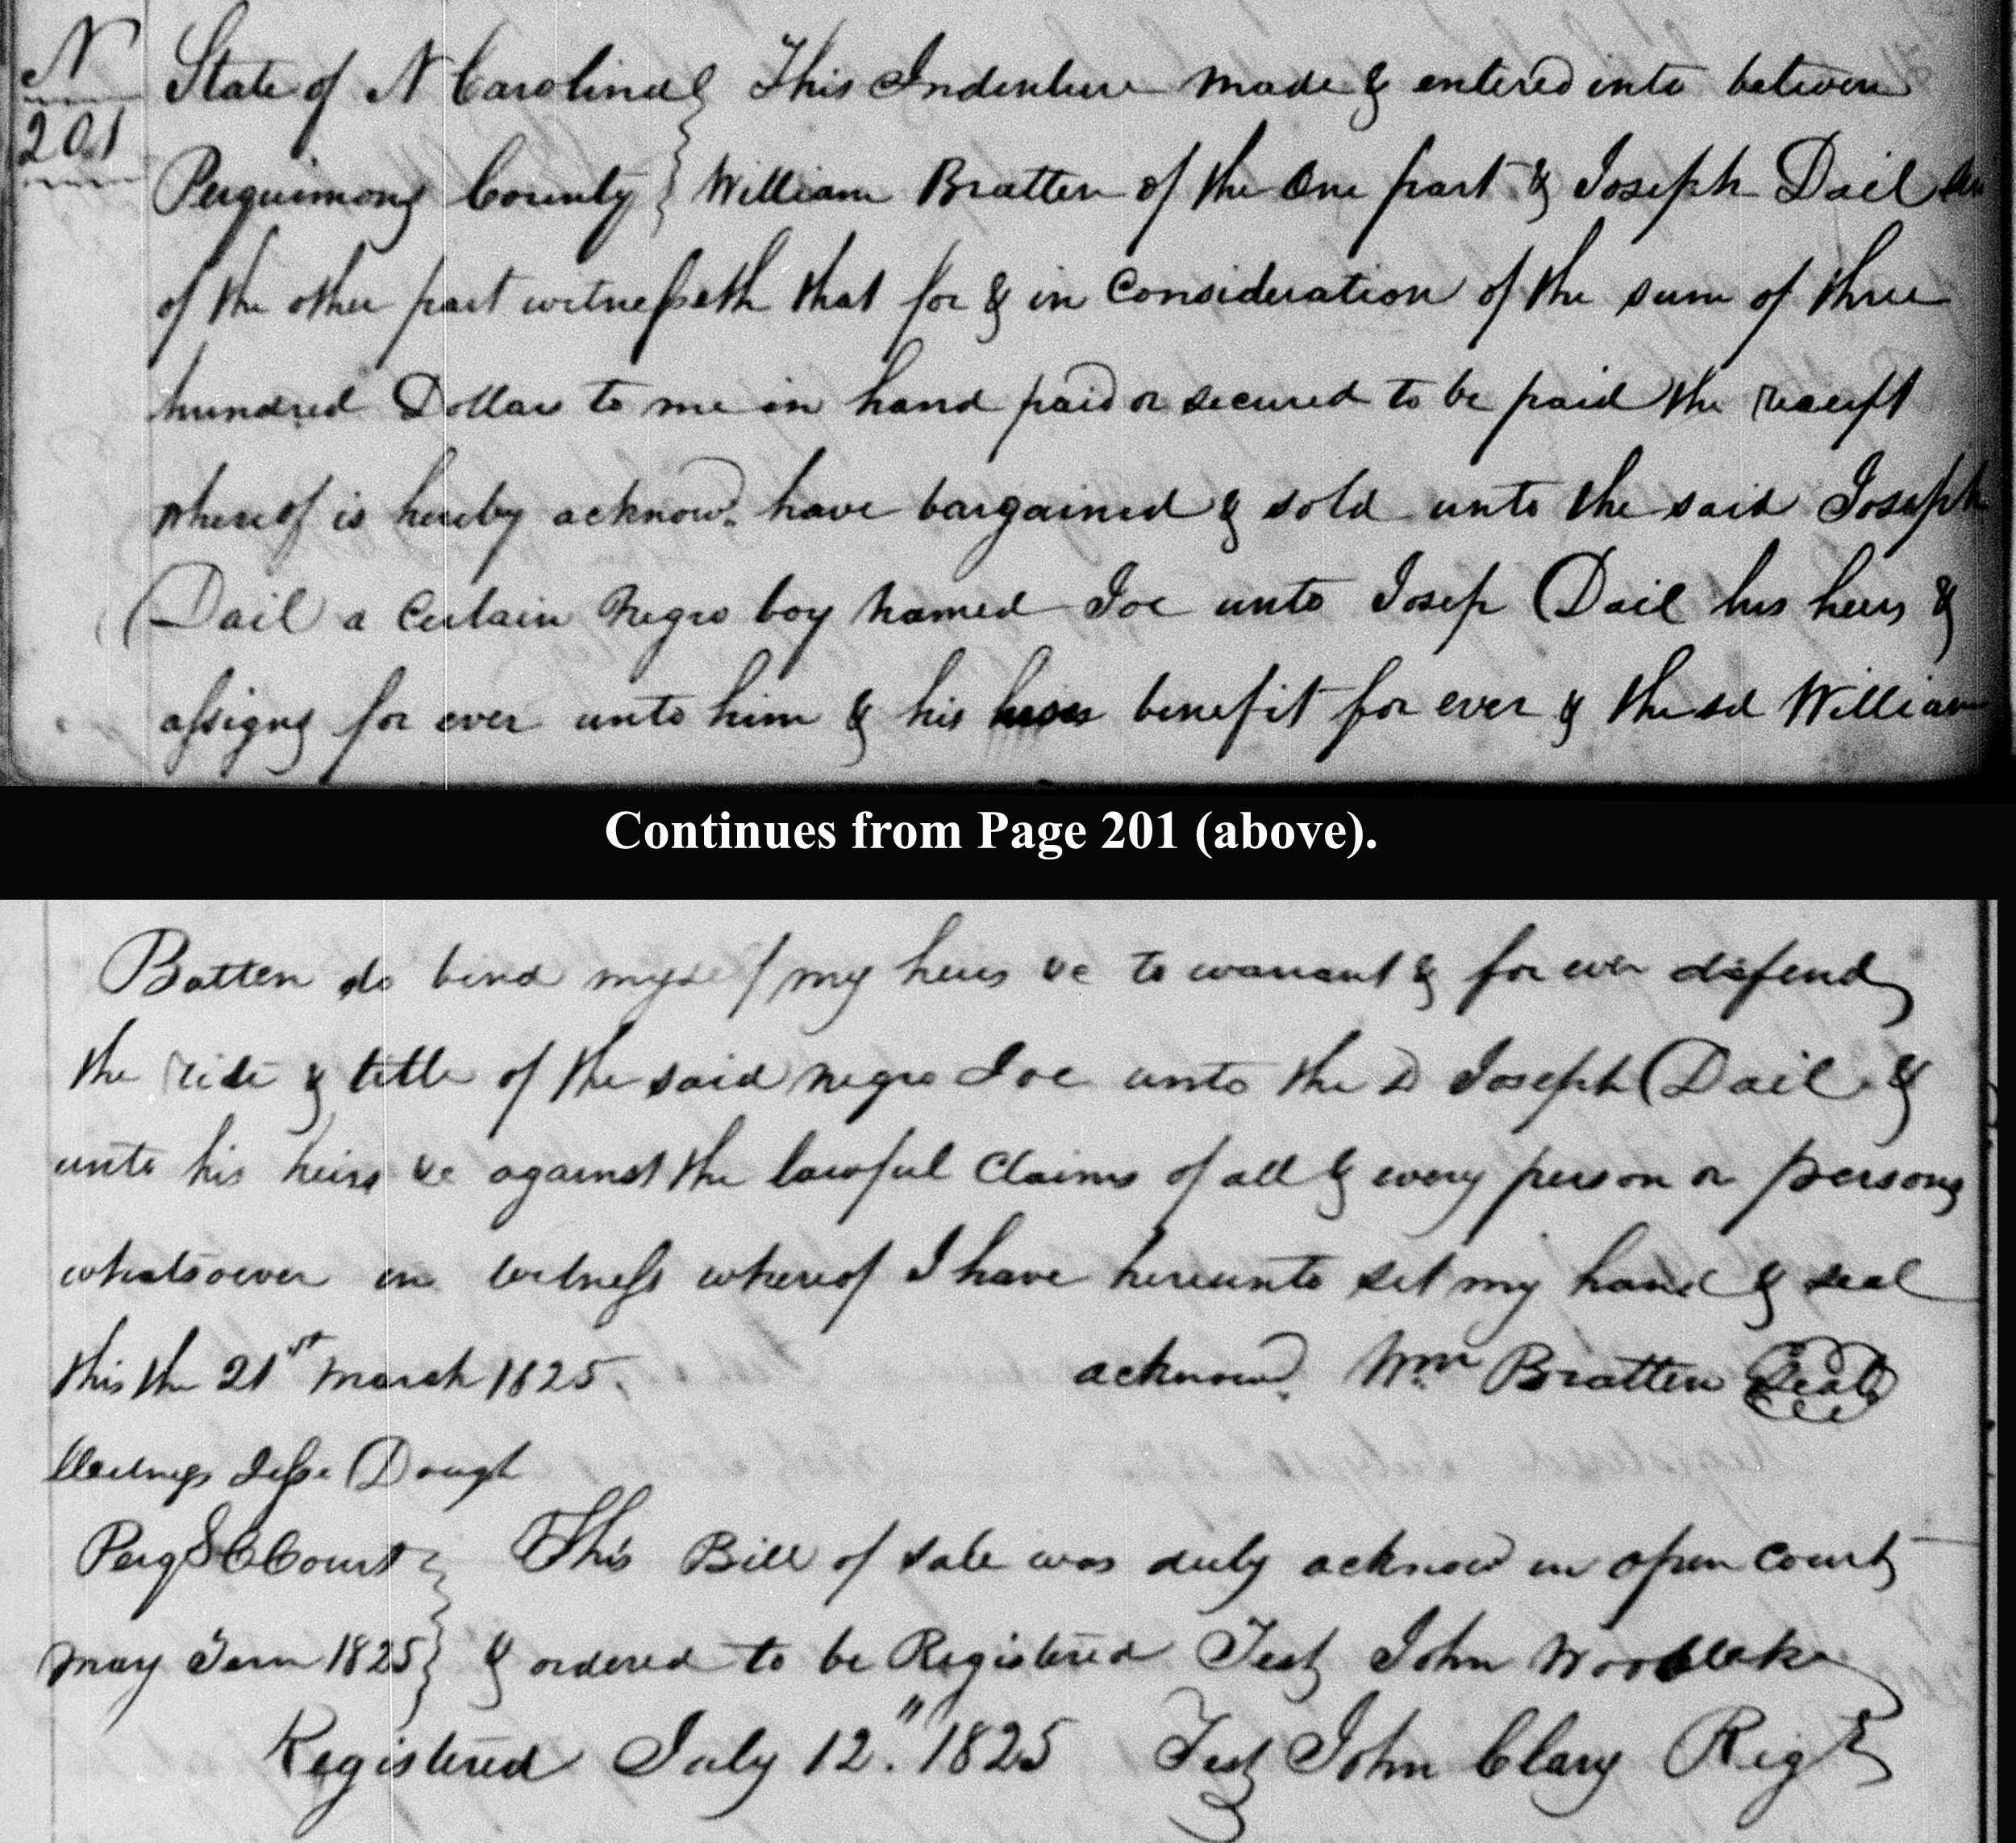 N
201
State of N Carolina } This Indenture made & entered into between
Perquimons County } William Bratten of the One part & Joseph Dail
of the other part witnesseth that for & in Consideration of the sum of three
hundred Dollars to me in hand paid or secured to be paid the receipt
whereof is hereby acknowd. have bargained & sold unto the said Joseph
Dail a Certain Negro boy named Joe unto Josep Dail his heirs &
assigns for ever unto him & his benefit for ever & the sd William
Continues from Page 201 (above).
Batten do bind myself my heirs &c to warrant & for ever defend
the rite & title of the said negro Joe unto the sd Joseph Dail &
unto his heirs &c against the lawful Claims of all & every person or persons
whatsoever in witness whereof I have hereunto set my hand & seal
this the 21st March 1825. acknowd. Wm Bratten Seal
Jesse Dough
Perq S C Court } This Bill of sale was duly acknowd in open court
May Term 1825 } & ordered to be Registered Test John Wood
Registered July 12" 1825 Test John Clary Regr